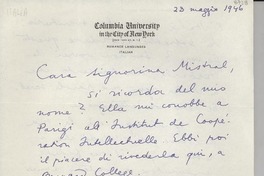 23 maggio 1946
Columbia University
in the City of New York
ROMANCE LANGUAGES
ITALIAN
Cara Signorina Mistral,
si ricorda del mio
nome? Ella mi conobbe a
Parigi all'Institut de Coopé-
ration Intellectuelle. Ebbi poi
il piacere di rivederla qui, a
College.